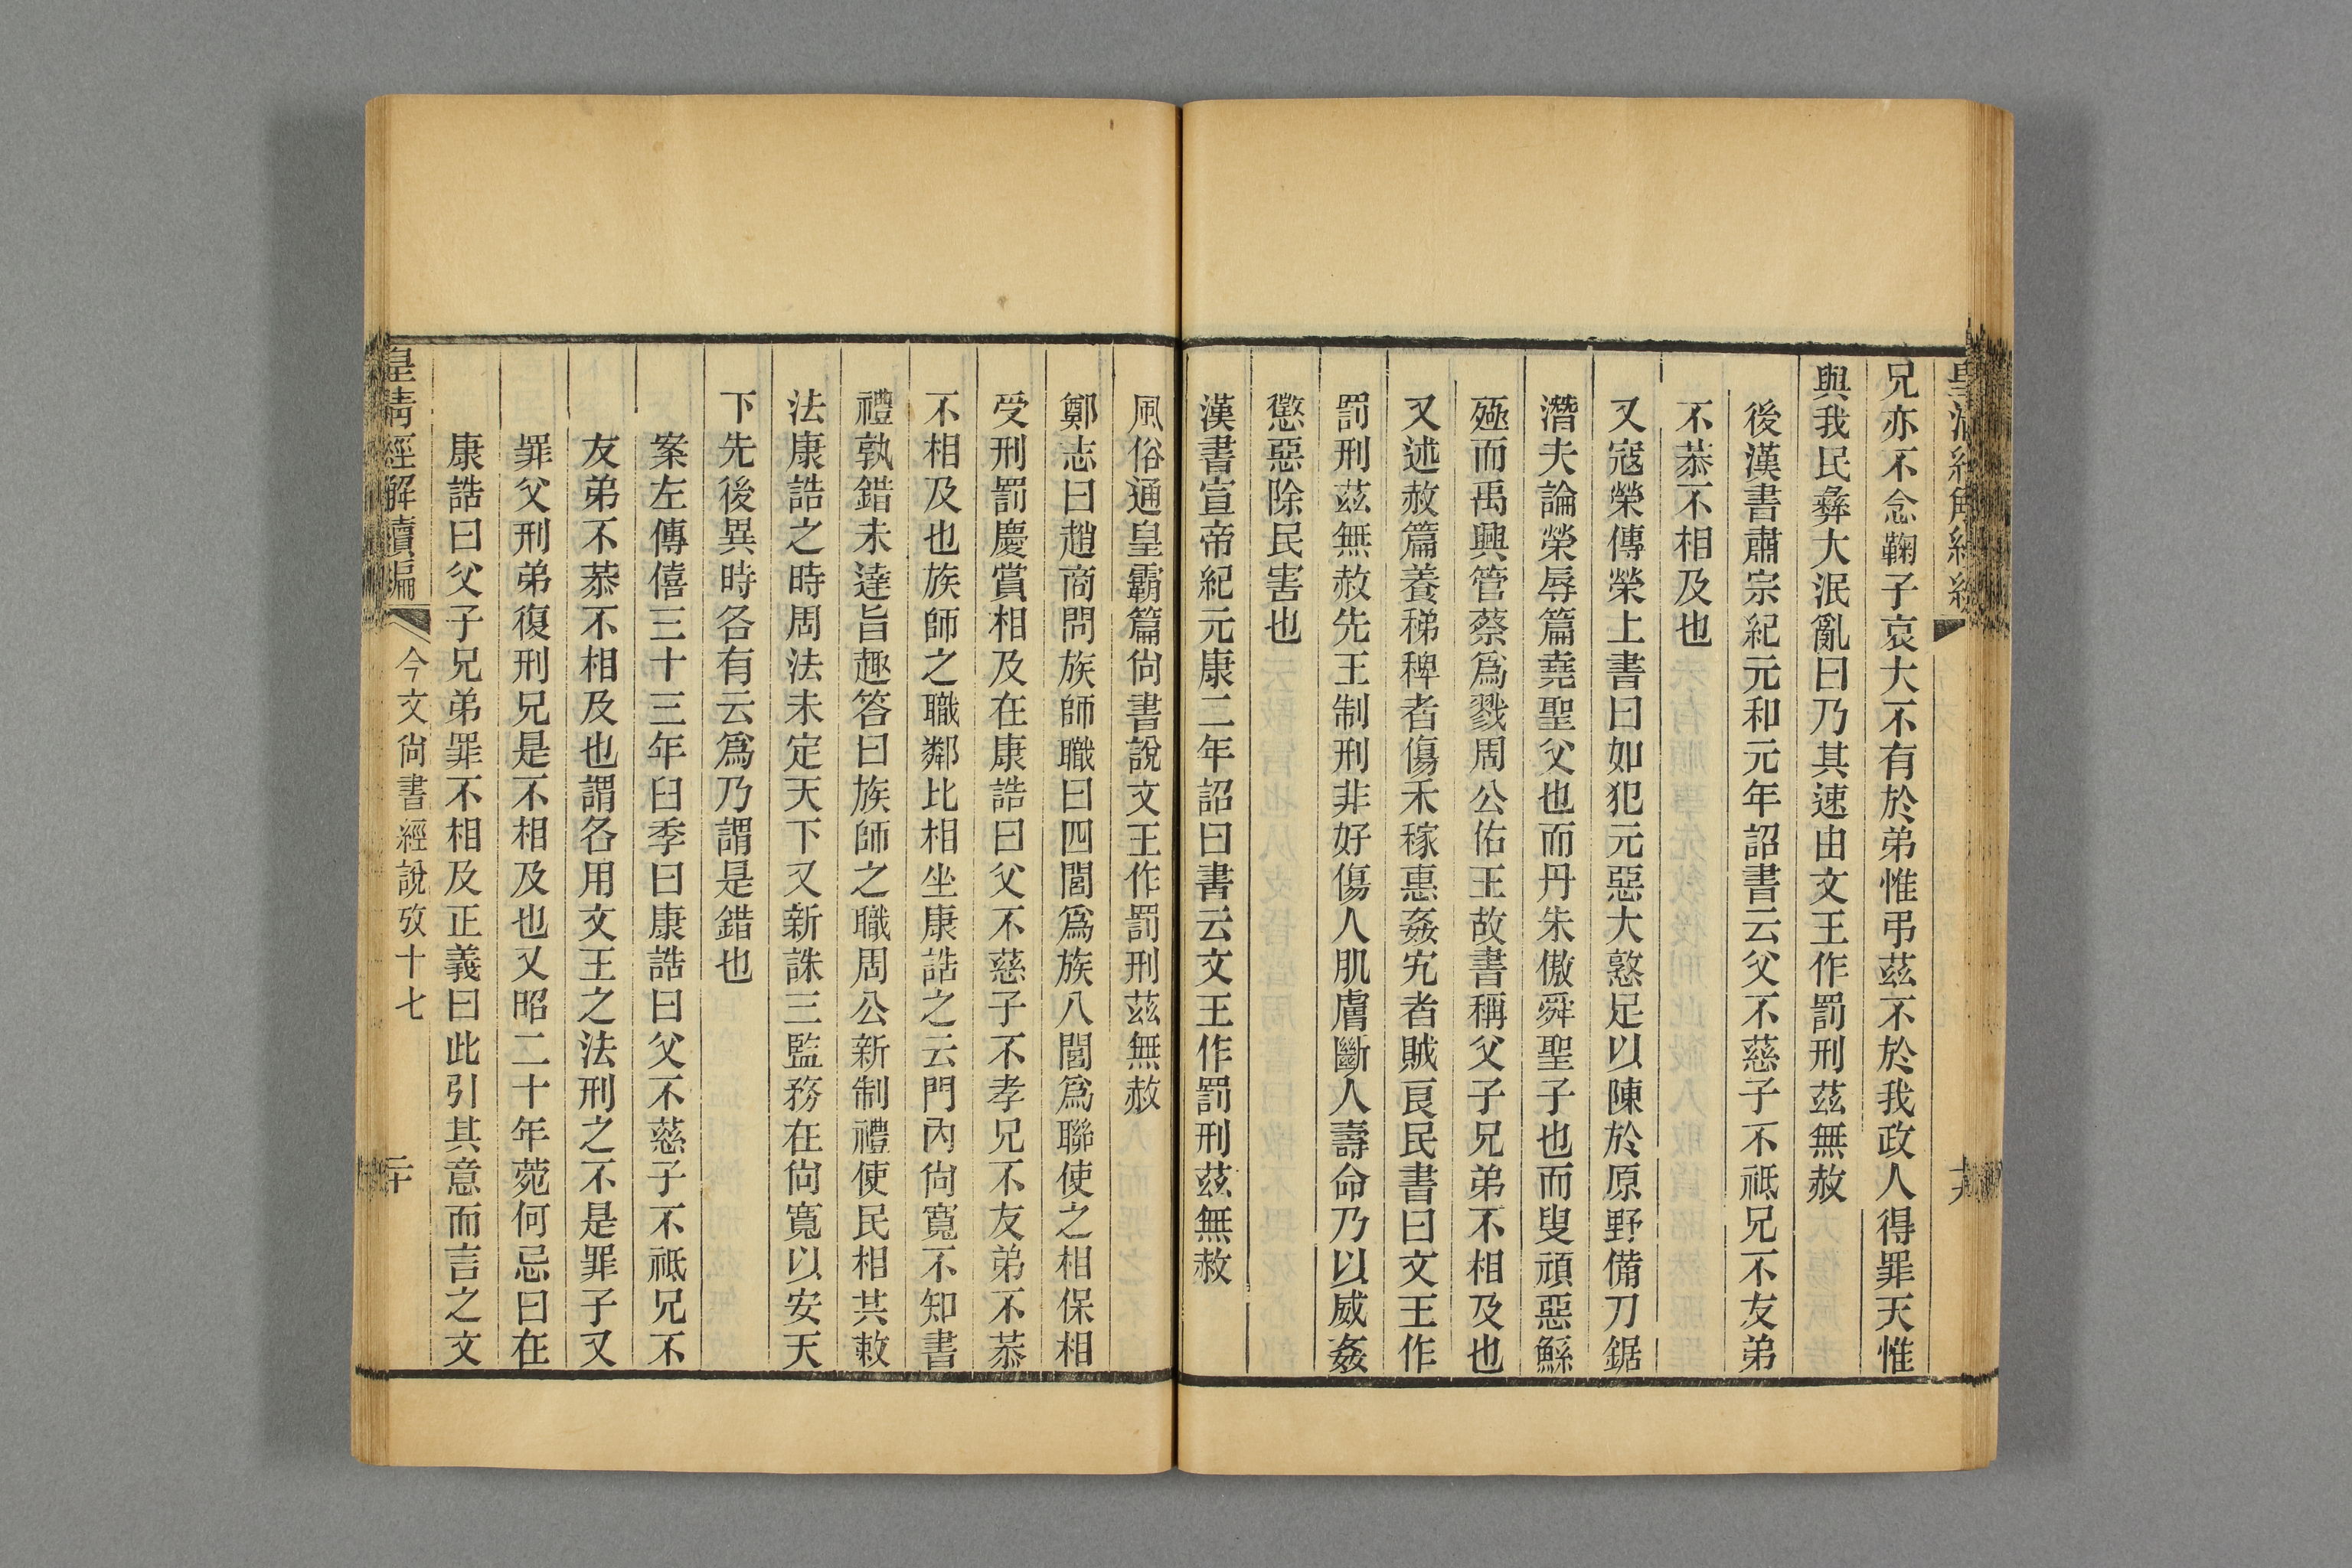 兄亦不念鞠子哀大不有於弟惟弔茲不於我政人得罪天惟
與我民彝大泯亂曰乃其速由文王作罰刑茲無赦
後漢書肅宗紀元和元年詔書云父不慈子不祗兄不友弟
不恭不相及也
又寇榮傳榮上書曰如犯元惡大憝足以陳於原野備刀鋸
潛夫論榮辱篇堯聖父也而丹朱傲舜聖子也而叟頑惡鯀
殛而禹興管蔡爲戮周公佑王故書稱父子兄弟不相及也
又述赦篇養稊稗者傷禾稼惠姦宄者賊良民書曰文王作
罰刑茲無赦先王制刑非好傷人肌膚斷人壽命乃以威姦
懲惡除民害也
漢書宣帝紀元康二年詔曰書云文王作罰刑茲無赦
風俗通皇霸篇尙書說文王作罰刑茲無赦
鄭志曰趙商問族師職曰四閭爲族八閭爲聯使之相保相
受刑罰慶賞相及在康誥曰父不慈子不孝兄不友弟不恭
不相及也族師之職鄰比相坐康誥之云門內尙寬不知書
禮孰錯未達旨趣答曰族師之職周公新制禮使民相共敕
法康誥之時周法未定天下又新誅三監務在尙寬以安天
下先後異時各有云爲乃謂是錯也
案左傳僖三十三年臼季曰康誥曰父不慈子不祗兄不
友弟不恭不相及也謂各用文王之法刑之不是罪子又
罪父刑弟復刑兄是不相及也又昭二十年菀何忌曰在
康誥曰父子兄弟罪不相及正義曰此引其意而言之文
皇清經解續編
今文尙書經說攷十七
二十